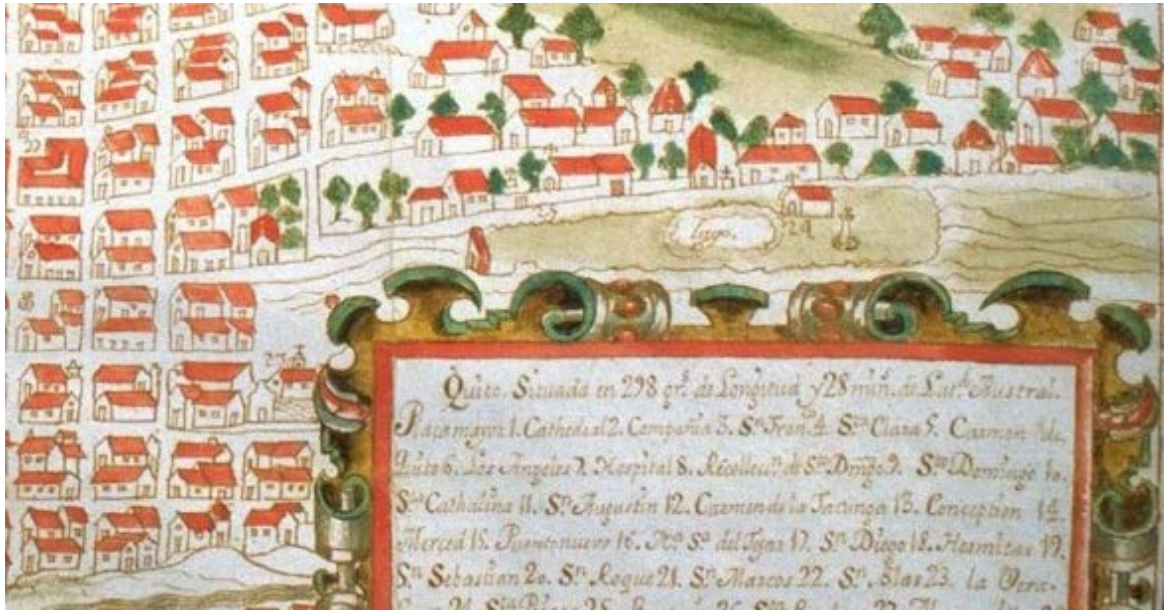 lago.
24
23
Quito, Situada en 298 grs. de Longitud y 28 mins. de Latd. Austral.
Plaça mayor 1. Cathedral 2. Compañia 3. Sn. Fran. 4. Sta. Clara 5. Carmen de
Quito 6. Los Angeles 7. Hospital 8. Recollecn. de Sto. Dmgo. 9. Sto. Domingo 10.
Sta. Cathalina 11. Sn. Augustin 12. Carmen de la Tacunga 13. Conception 14
Merced 15. Puente nuevo 16. Na. Sa. del Tejar 17. Sn. Diego 18. Hermitas 19.
Sn. Sebastian 20. Sn. Roque 21. Sn. Marcos 22. Sn. Blas 23. la Vera
Cruz 24. Sta.